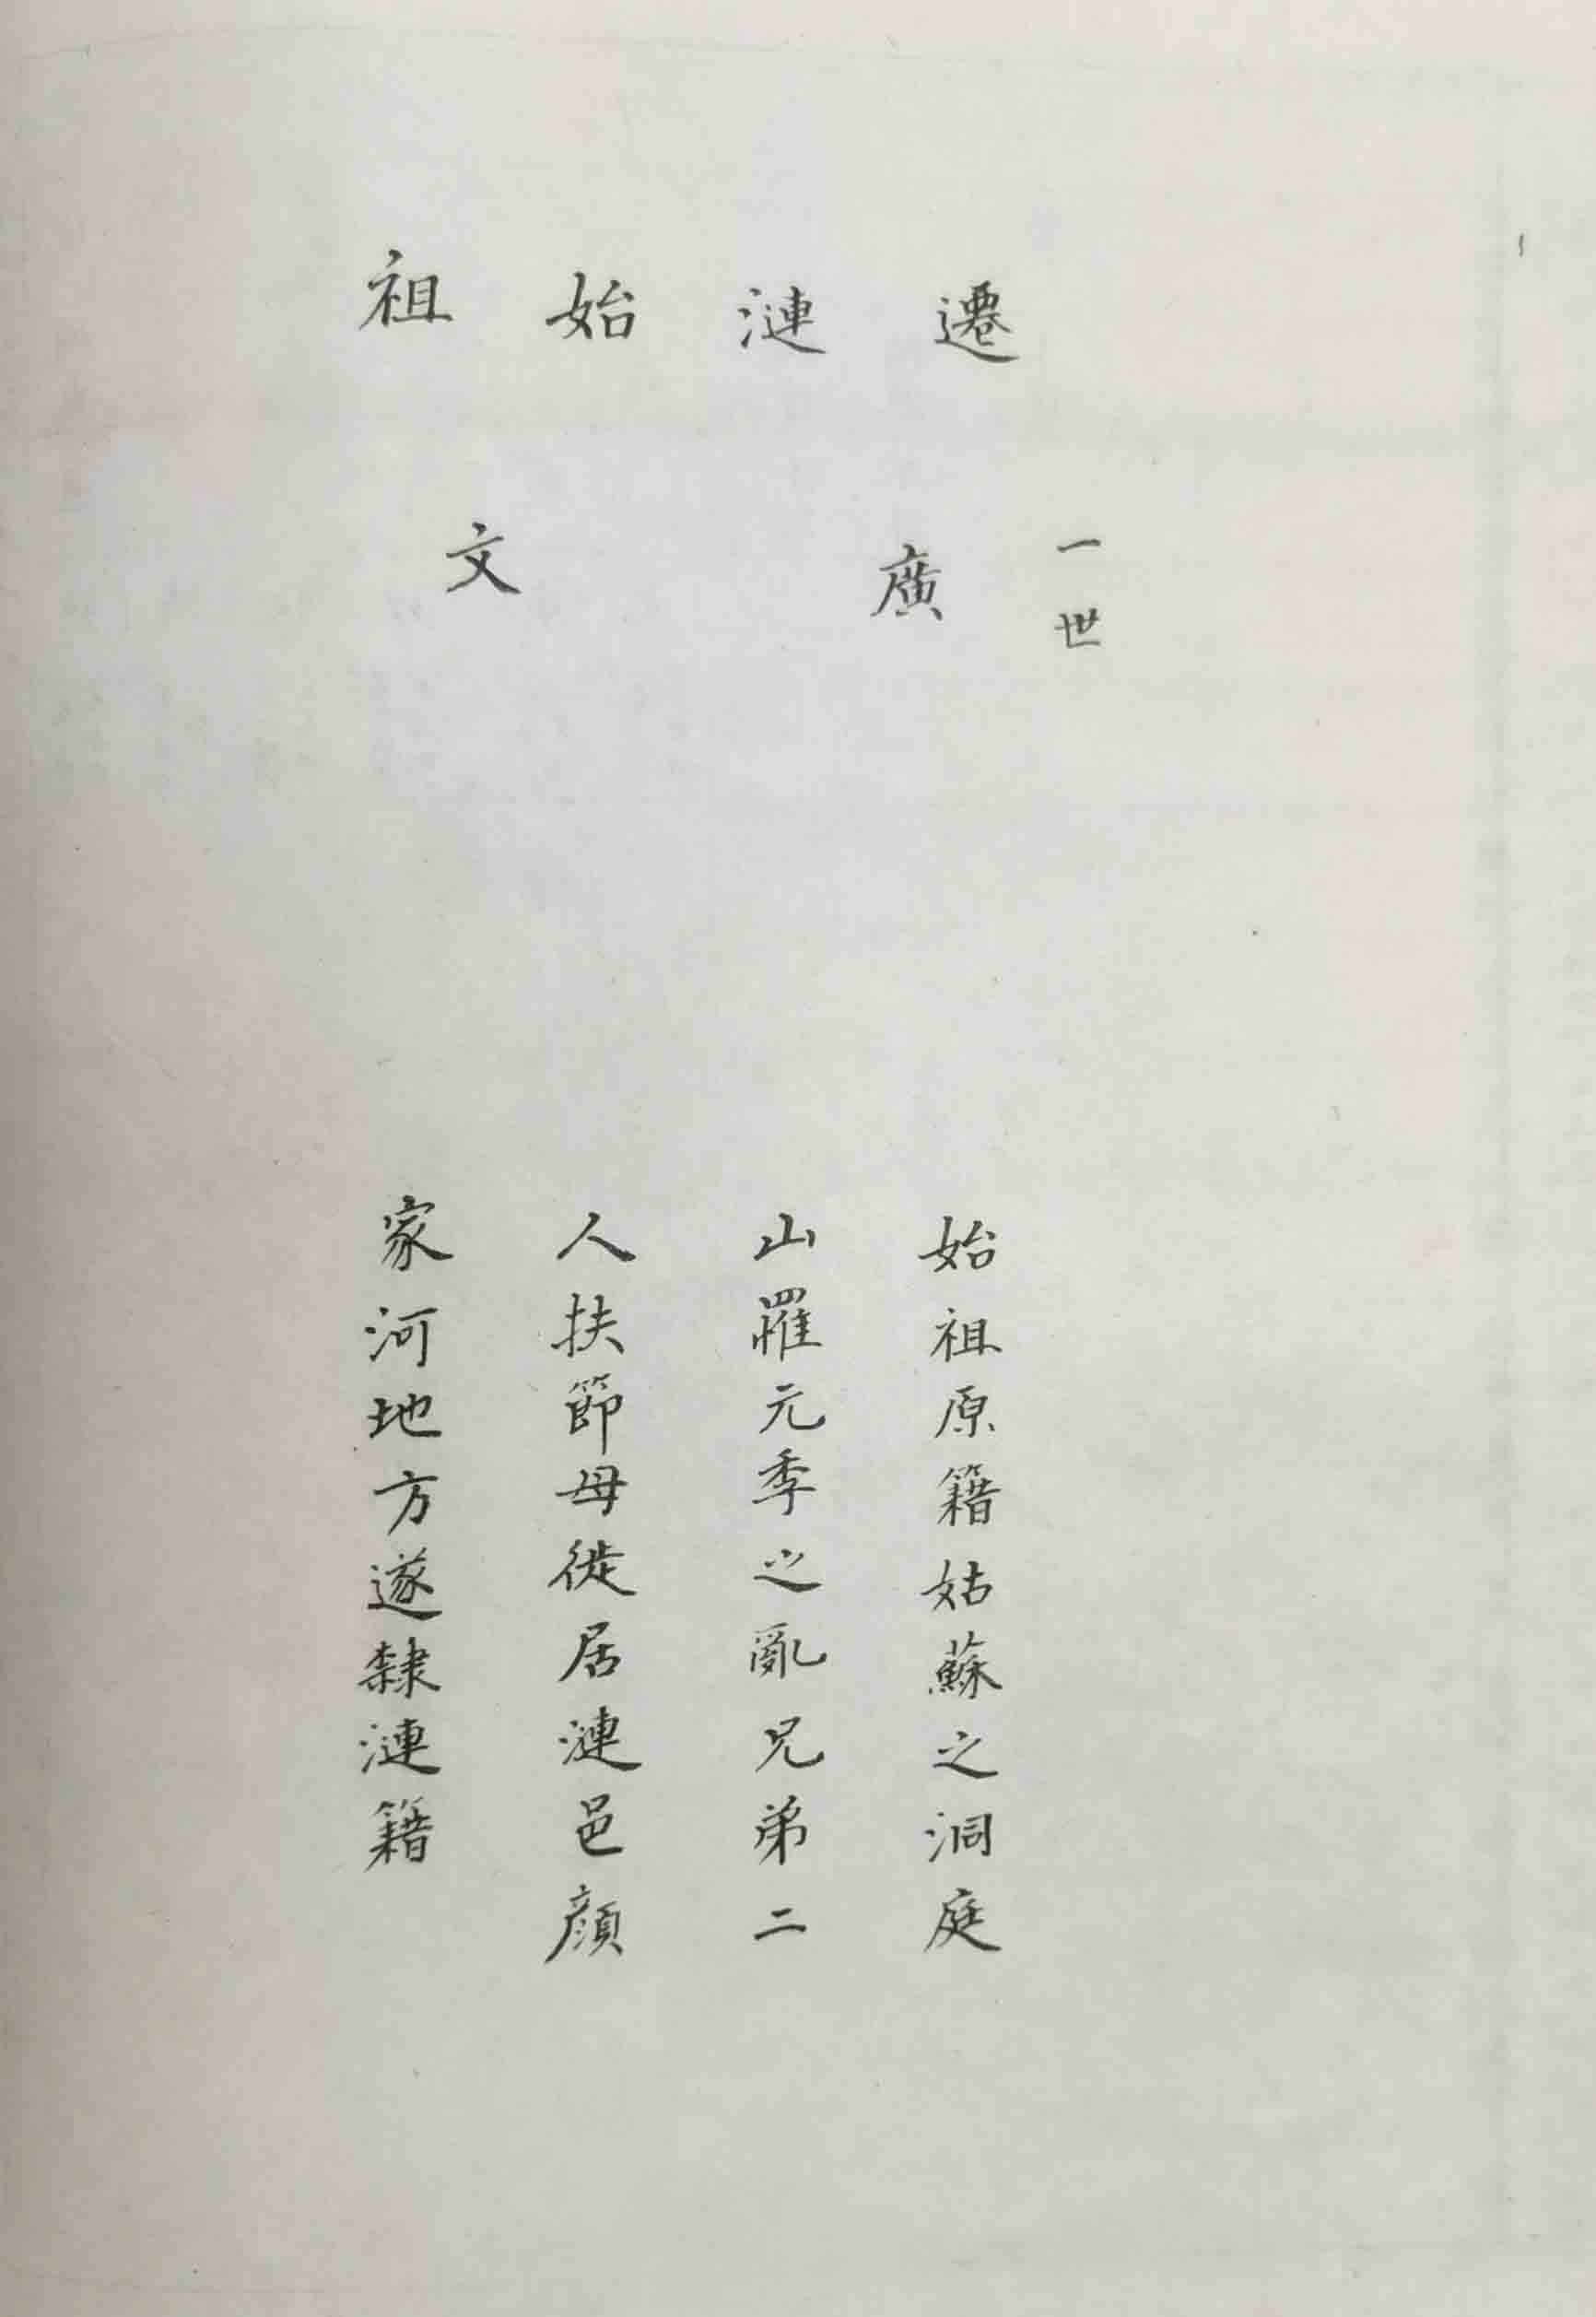 遷漣始祖
一世
廣文
始祖原籍姑蘇之洞庭
山罹元季之亂兄弟二
人扶節母徙居漣邑顏
家河地方遂隸漣籍